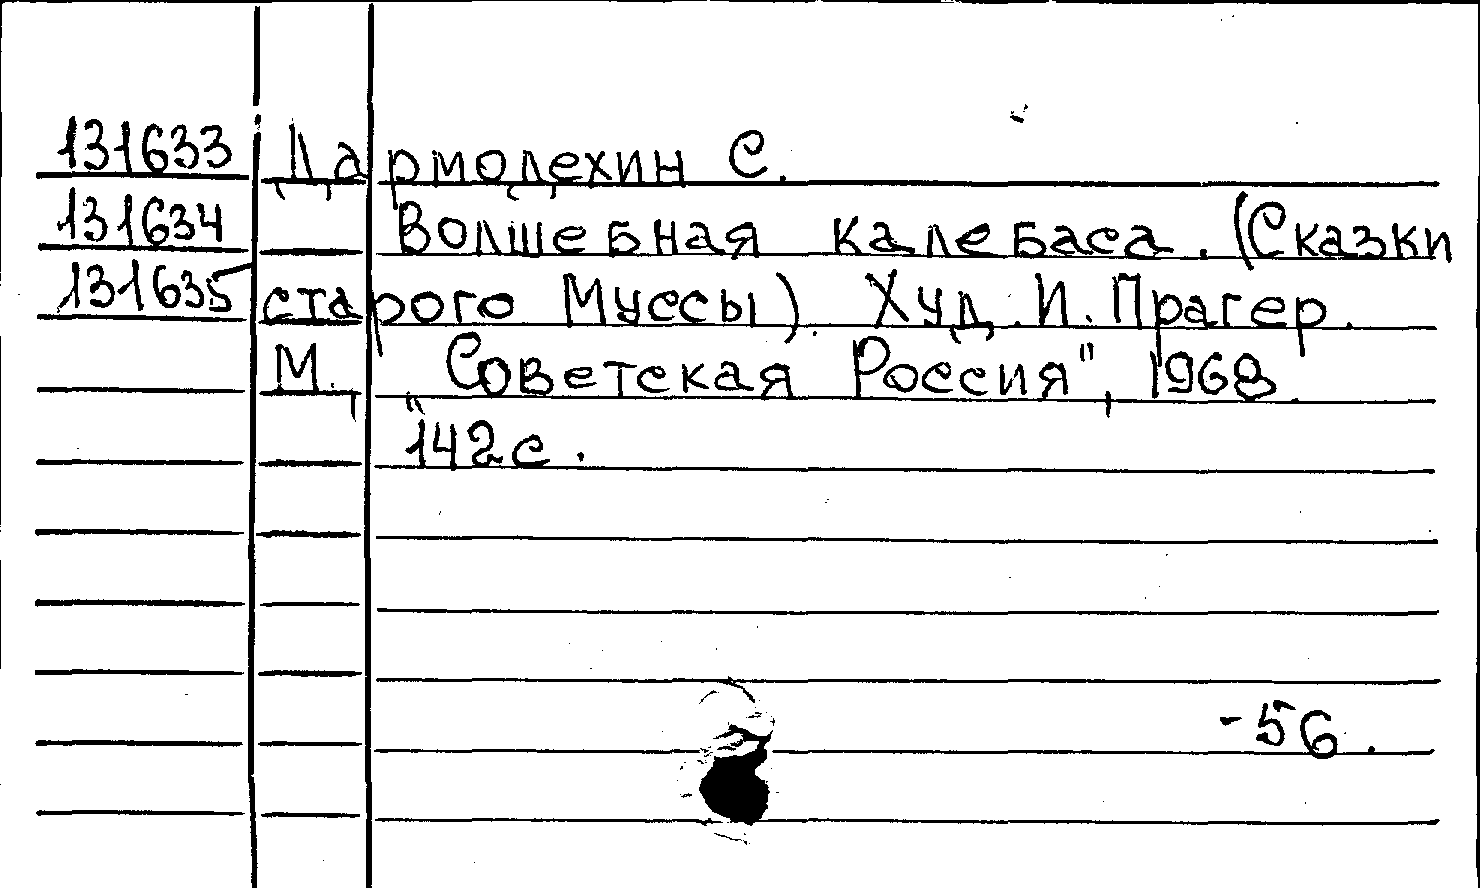 131633 Дармодехин С.
131634 Волшебная калебаса. (Сказки
131635 старого Муссы). Худ. И. Прагер.
М., "Советская Россия", 1968.
142с.
-56.